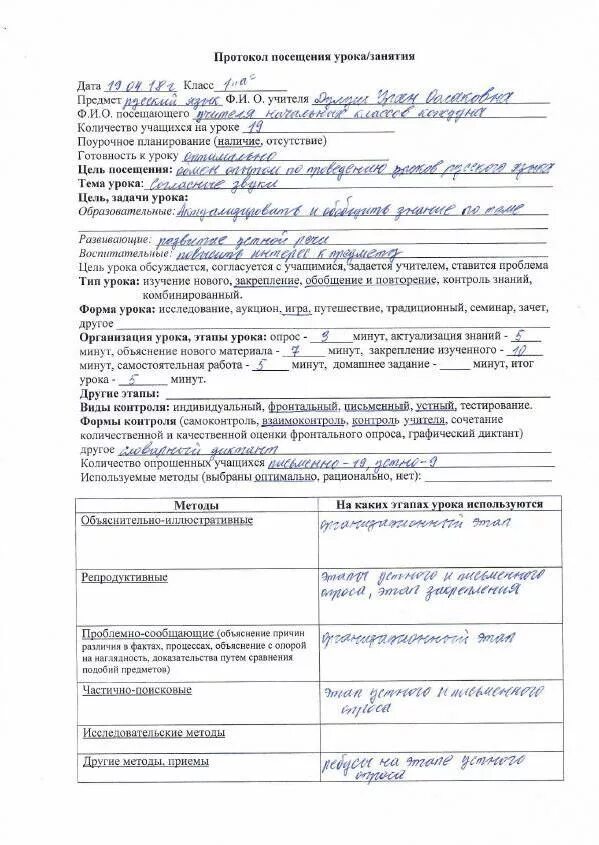 Протокол посещения урока/занятия
Дата 19.04.18г Класс 1 "а"
Предмет русский язык Ф.И. О. учителя
Ф.И.О. посещающего учителя начальных классов
Количество учащихся на уроке 19
Поурочное планирование (наличие, отсутствие)
Готовность к уроку оптимально
Цель посещения: обмен опытом по проведению уроков русского языка
Тема урока: Согласные звуки
Цель, задачи урока:
Образовательные: Актуализировать и обобщить знание по теме
Развивающие: развитие устной речи
Воспитательные: повысить интерес к предмету
Цель урока обсуждается, согласуется с учащимися, задается учителем, ставится проблема
Тип урока: изучение нового, закрепление, обобщение и повторение, контроль знаний,
комбинированный.
Форма урока: исследование, аукцион, игра, путешествие, традиционный, семинар, зачет,
другое
Организация урока, этапы урока: опрос - 3 минут, актуализация знаний - 5
минут, объяснение нового материала - 7 минут, закрепление изученного - 10
минут, самостоятельная работа - 5 минут, домашнее задание - минут, итог
урока - 5 минут.
Другие этапы:
Виды контроля: индивидуальный, фронтальный, письменный, устный, тестирование.
Формы контроля (самоконтроль, взаимоконтроль, контроль учителя, сочетание
количественной и качественной оценки фронтального опроса, графический диктант)
другое словарный диктант
Количество опрошенных учащихся письменно-19, устно-9
Используемые методы (выбраны оптимально, рационально, нет):
Методы На каких этапах урока используются
Объяснительно-иллюстративные организационный этап
Репродуктивные этапы устного и письменного
опроса, этап закрепления
Проблемно-сообщающие (объяснение причин организационный этап
различия в фактах, процессах, объяснение с опорой
на наглядность, доказательства путем сравнения
подобий предметов)
Частично-поисковые этап устного и письменного
опроса
Исследовательские методы
Другие методы, приемы ребусы на этапе устного
опроса